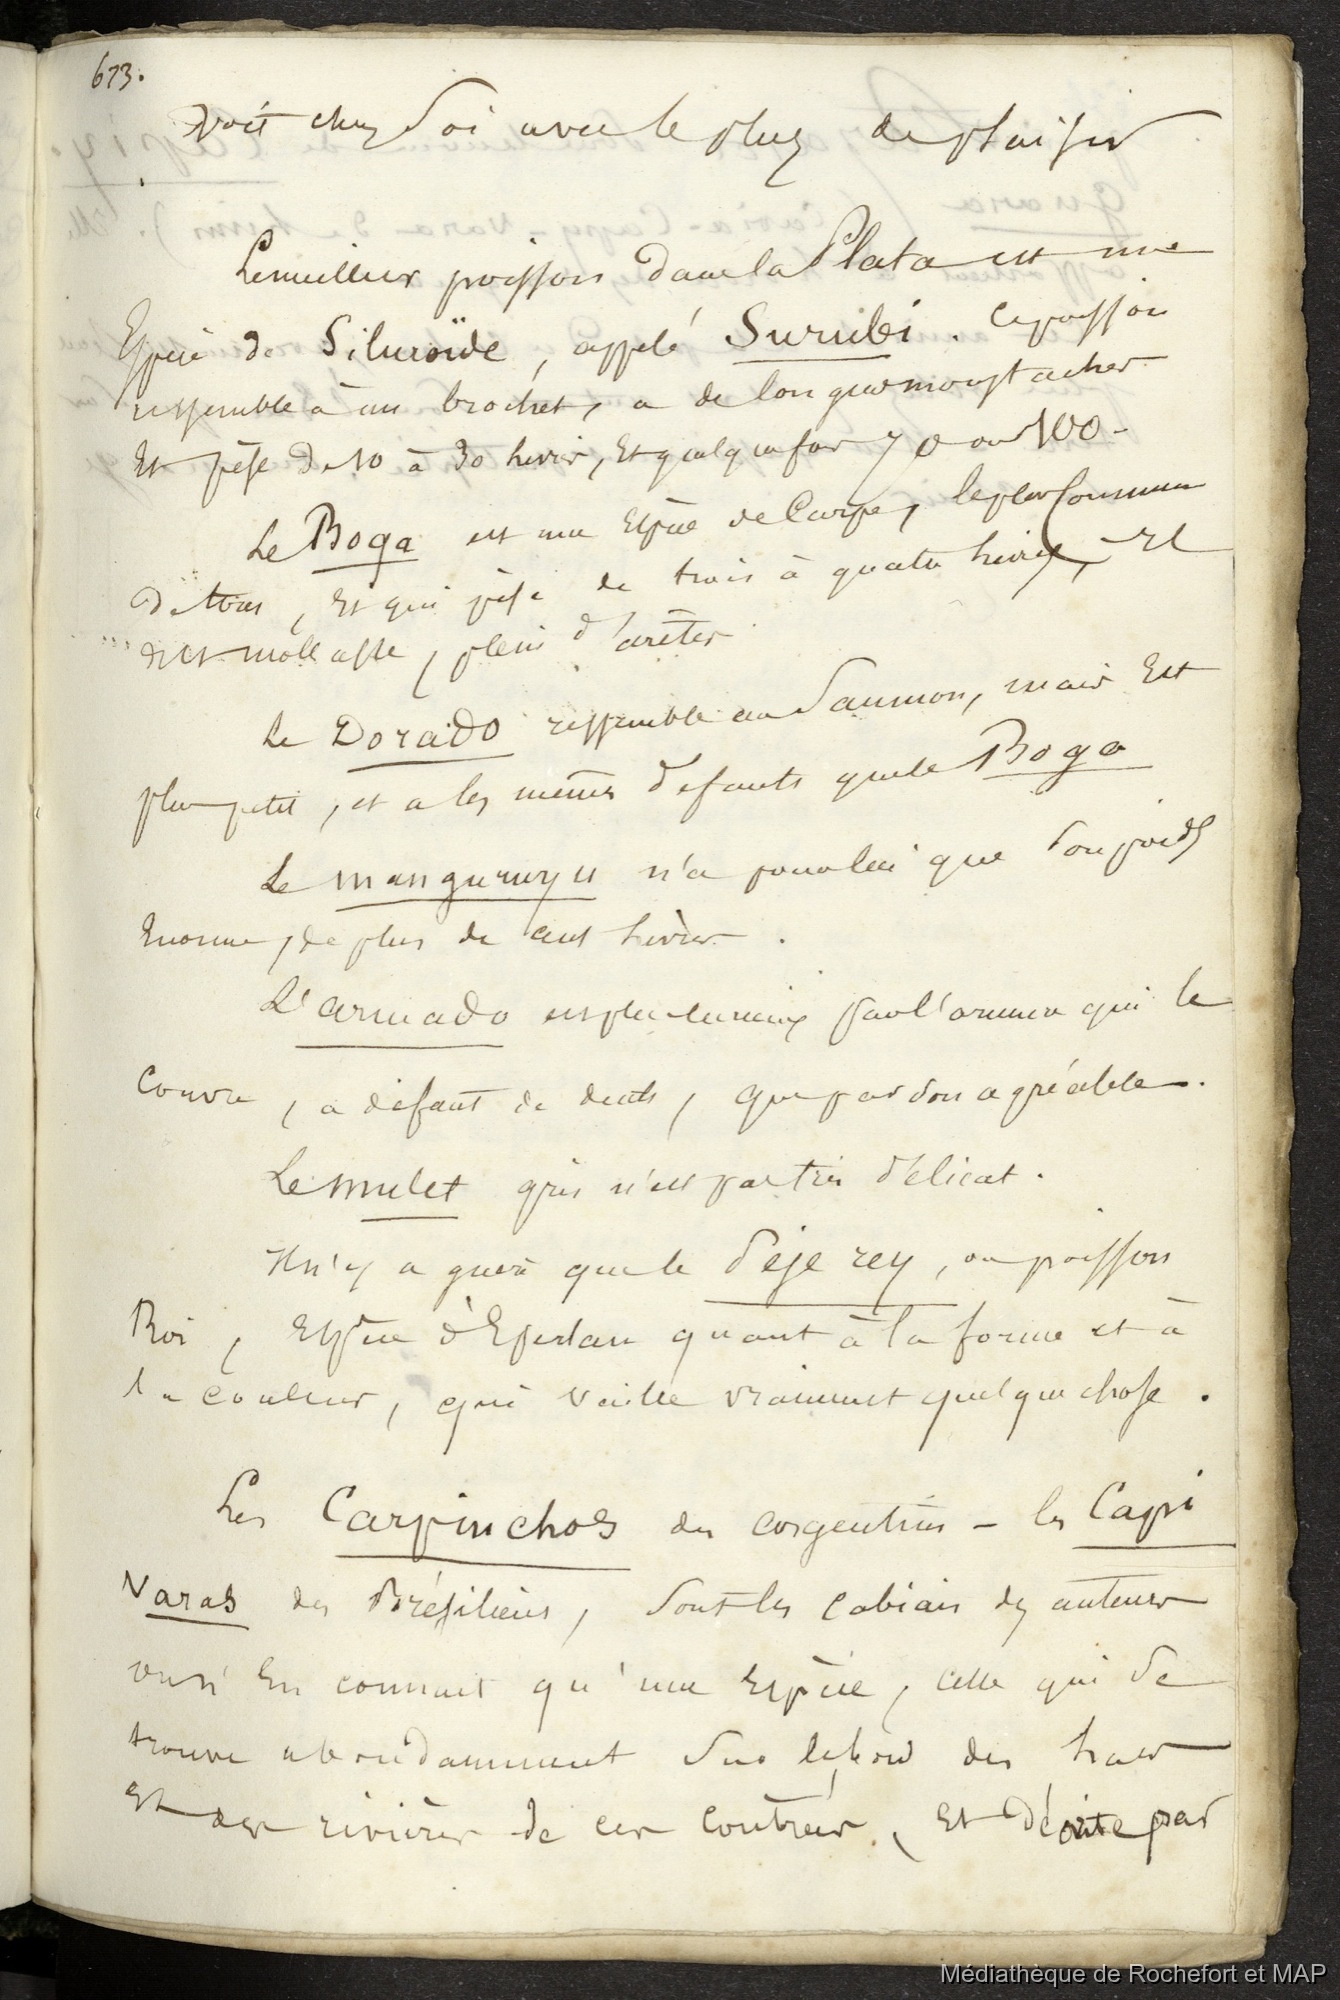 673.
voit chez soi avec le plus de plaisir
Le meilleur poisson dans la Plata est une
Espèce de Siluroïde, appelé Surubi. Ce poisson
ressemble à un brochet, a de longues moustaches
Et pèse de 10 à 30 livres, Et quelquefois 70 ou 100-
Le Boga est une Espèce de Carpe, le plus Commun
De tous, Et qui pèse de trois à quatre livres, Il
Est mollasse, plein d'arêtes
Le Dorado ressemble au Saumon, mais Est
plus petit, et a les mêmes défauts que le Boga
Le manguruyu n'a pour lui que son poids
Enorme, de plus de cent livres.
L'armado est plus curieux par l'armure qui le
Couvre, a défaut de dents, que par son agréable.
Le mulet gris n'est pas très délicat.
Il n'y a guère que le péje rey, ou poisson
Roi, Espèce d'Eperlan quant à la forme et à
la couleur, qui vaille vraiment quelque chose.
Les Carpinchos des argentins - les Capi
Varas des Brésiliens, sont les cabiais des auteurs
on n'En connait qu'une Espèce, celle qui se
trouve abondamment sur le bord des lacs
Et des rivières de ces contrées, Et décrite par
Médiathèque de Rochefort et MAP